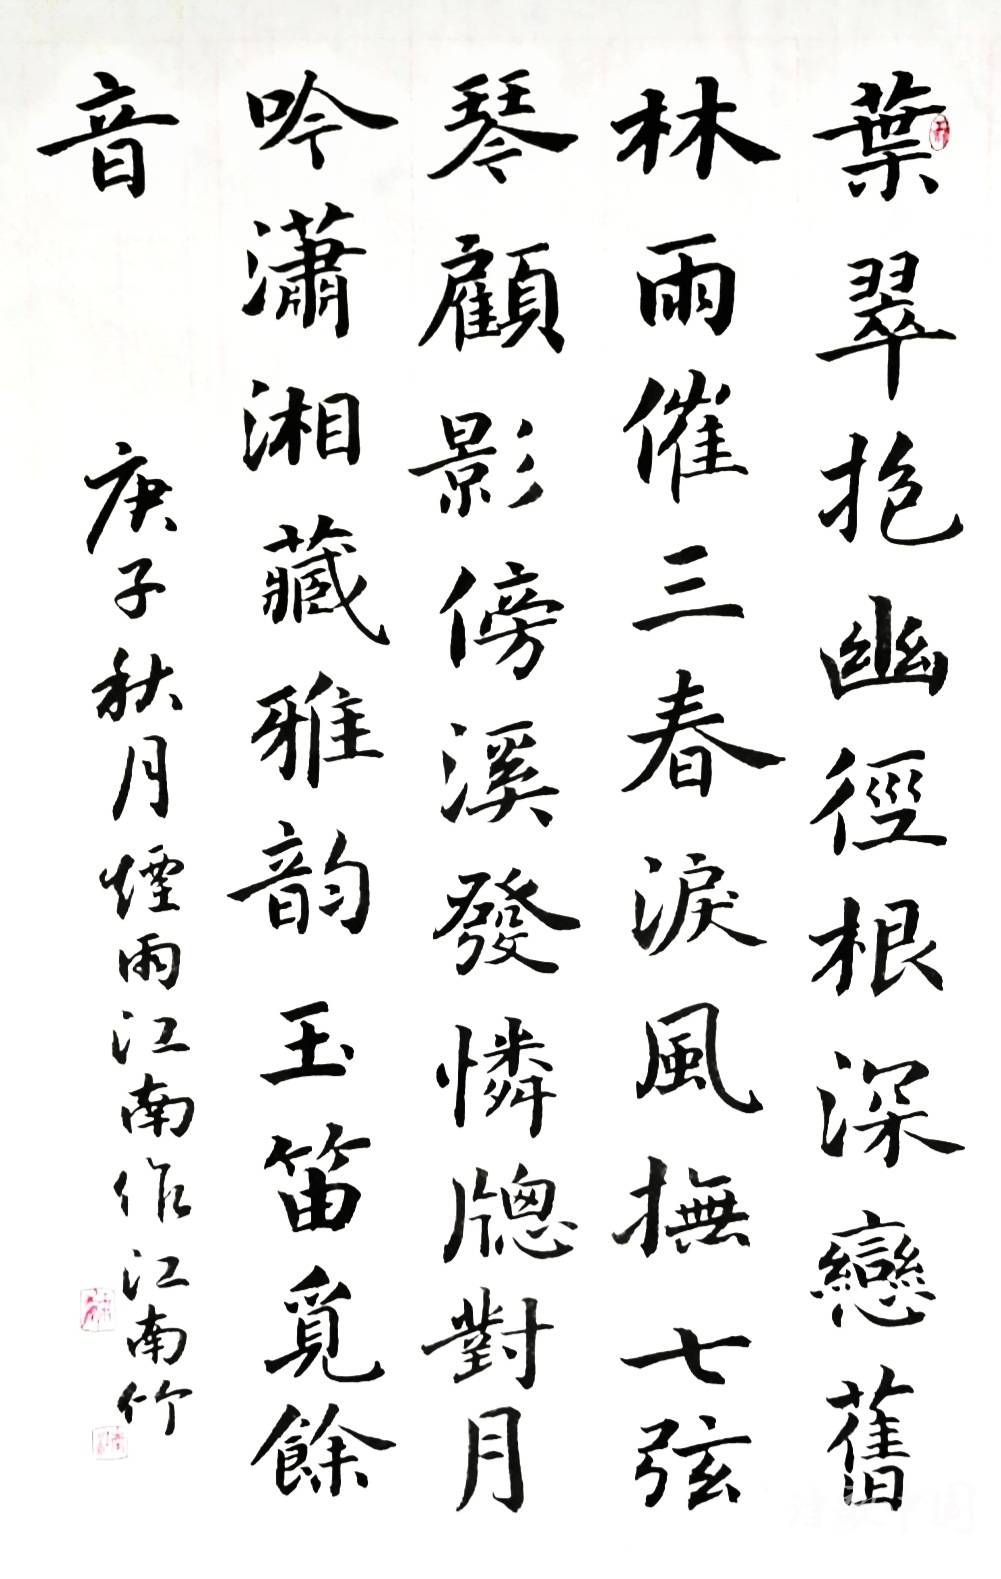 葉翠抱幽徑根深戀舊
林雨催三春淚風撫七弦
琴顧影傍溪發憐牕對月
吟瀟湘藏雅韵玉笛覓餘
音
庚子秋月煙雨江南作江南竹